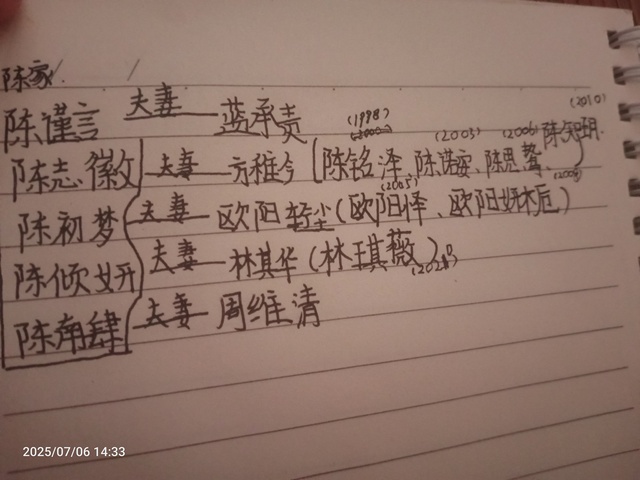 陈家
陈谨言 夫妻 蓝承责
陈志徽 夫妻 方稚今 [陈铭泽(1998)、陈诺安(2003)、陈思鸷(2006)、陈知玥(2010)
陈初梦 夫妻 欧阳轻尘(欧阳怿(2005)、欧阳妍栀(2008))
陈倾妍 夫妻 林其华(林琪薇)
陈南肆 夫妻 周维清
2025/07/06 14:33